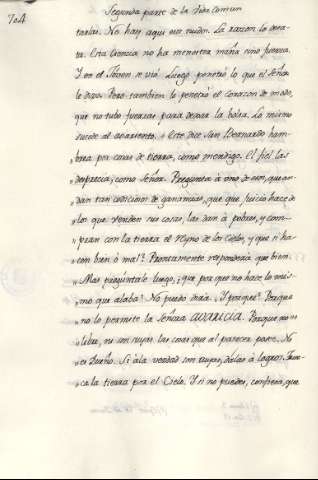 704
Segunda parte de la Vida Comun
tarlas. No hay aqui mas ruido. La razon lo dicta-
ta. Esta licencia no ha menester maña sino fuerza.
Y en el Joven se vió. Luego penetró lo que el Señor
le dixo. Pero tambien le penetró el corazon de modo,
que no tubo fuerzas para dexar la bolsa. Lo mismo
sucede al avariento. Este dice San Bernardo ham-
„brea por cosas de tierra, como mendigo. El fiel las
„desprecia, como Señor. Pregunta à uno de esos, que an-
„dan tan codiciosos de ganancias, que que juicio hace de
„los que venden sus cosas, las dan à pobres, y com-
„pran con la tierra el Reyno de los Cielos, y que si ha-
„cen bien ò mal? Prontamente responderà que bien.
„Mas pregúntale luego, ¿que por que no hace lo mis-
„mo que alaba? No puedo dirà. ¿Y porque? Porque
„no lo permite la Señora AVARICIA. Porque no es
„libre, ni son suyas las cosas que al parecer posee. No
„es Dueño. Si à la verdad son tuyas, dalas à logro.
„ca la tierra por el Cielo. Y si no puedes, confiesa, que